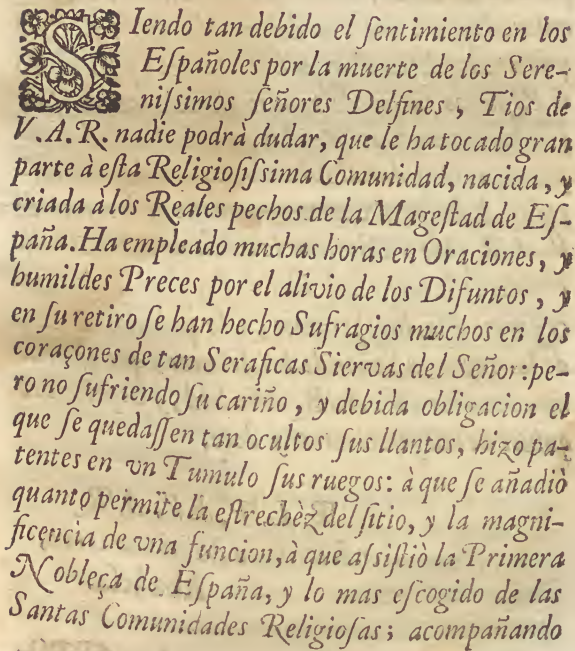 SIendo tan debido el ſentimiento en los
Eſpañoles por la muerte de los Sere-
niſsimos ſeñores Delfines, Tios de
V.A.R. nadie podrà dudar, que le ha tocado gran
parte à eſta Religioſiſsima Comunidad, nacida, y
criada à los Reales pechos de la Mageſtad de Eſ-
paña. Ha empleado muchas horas en Oraciones, y
humildes Preces por el alivio de los Difuntos, y
en ſu retiro ſe han hecho Sufragios muchos en los
coraçones de tan Seraficas Siervas del Señor: pe-
ro no ſufriendo ſu cariño, y debida obligacion el
que ſe quedaſſen tan ocultos ſus llantos, hizo pa-
tentes en vn Tumulo ſus ruegos: à que ſe añadiò
quanto permite la eſtrechèz del ſitio, y la magni-
ficencia de vna funcion, à que aſsiſtiò la Primera
Nobleça de Eſpaña, y lo mas eſcogido de las
Santas Comunidades Religioſas; acompañando